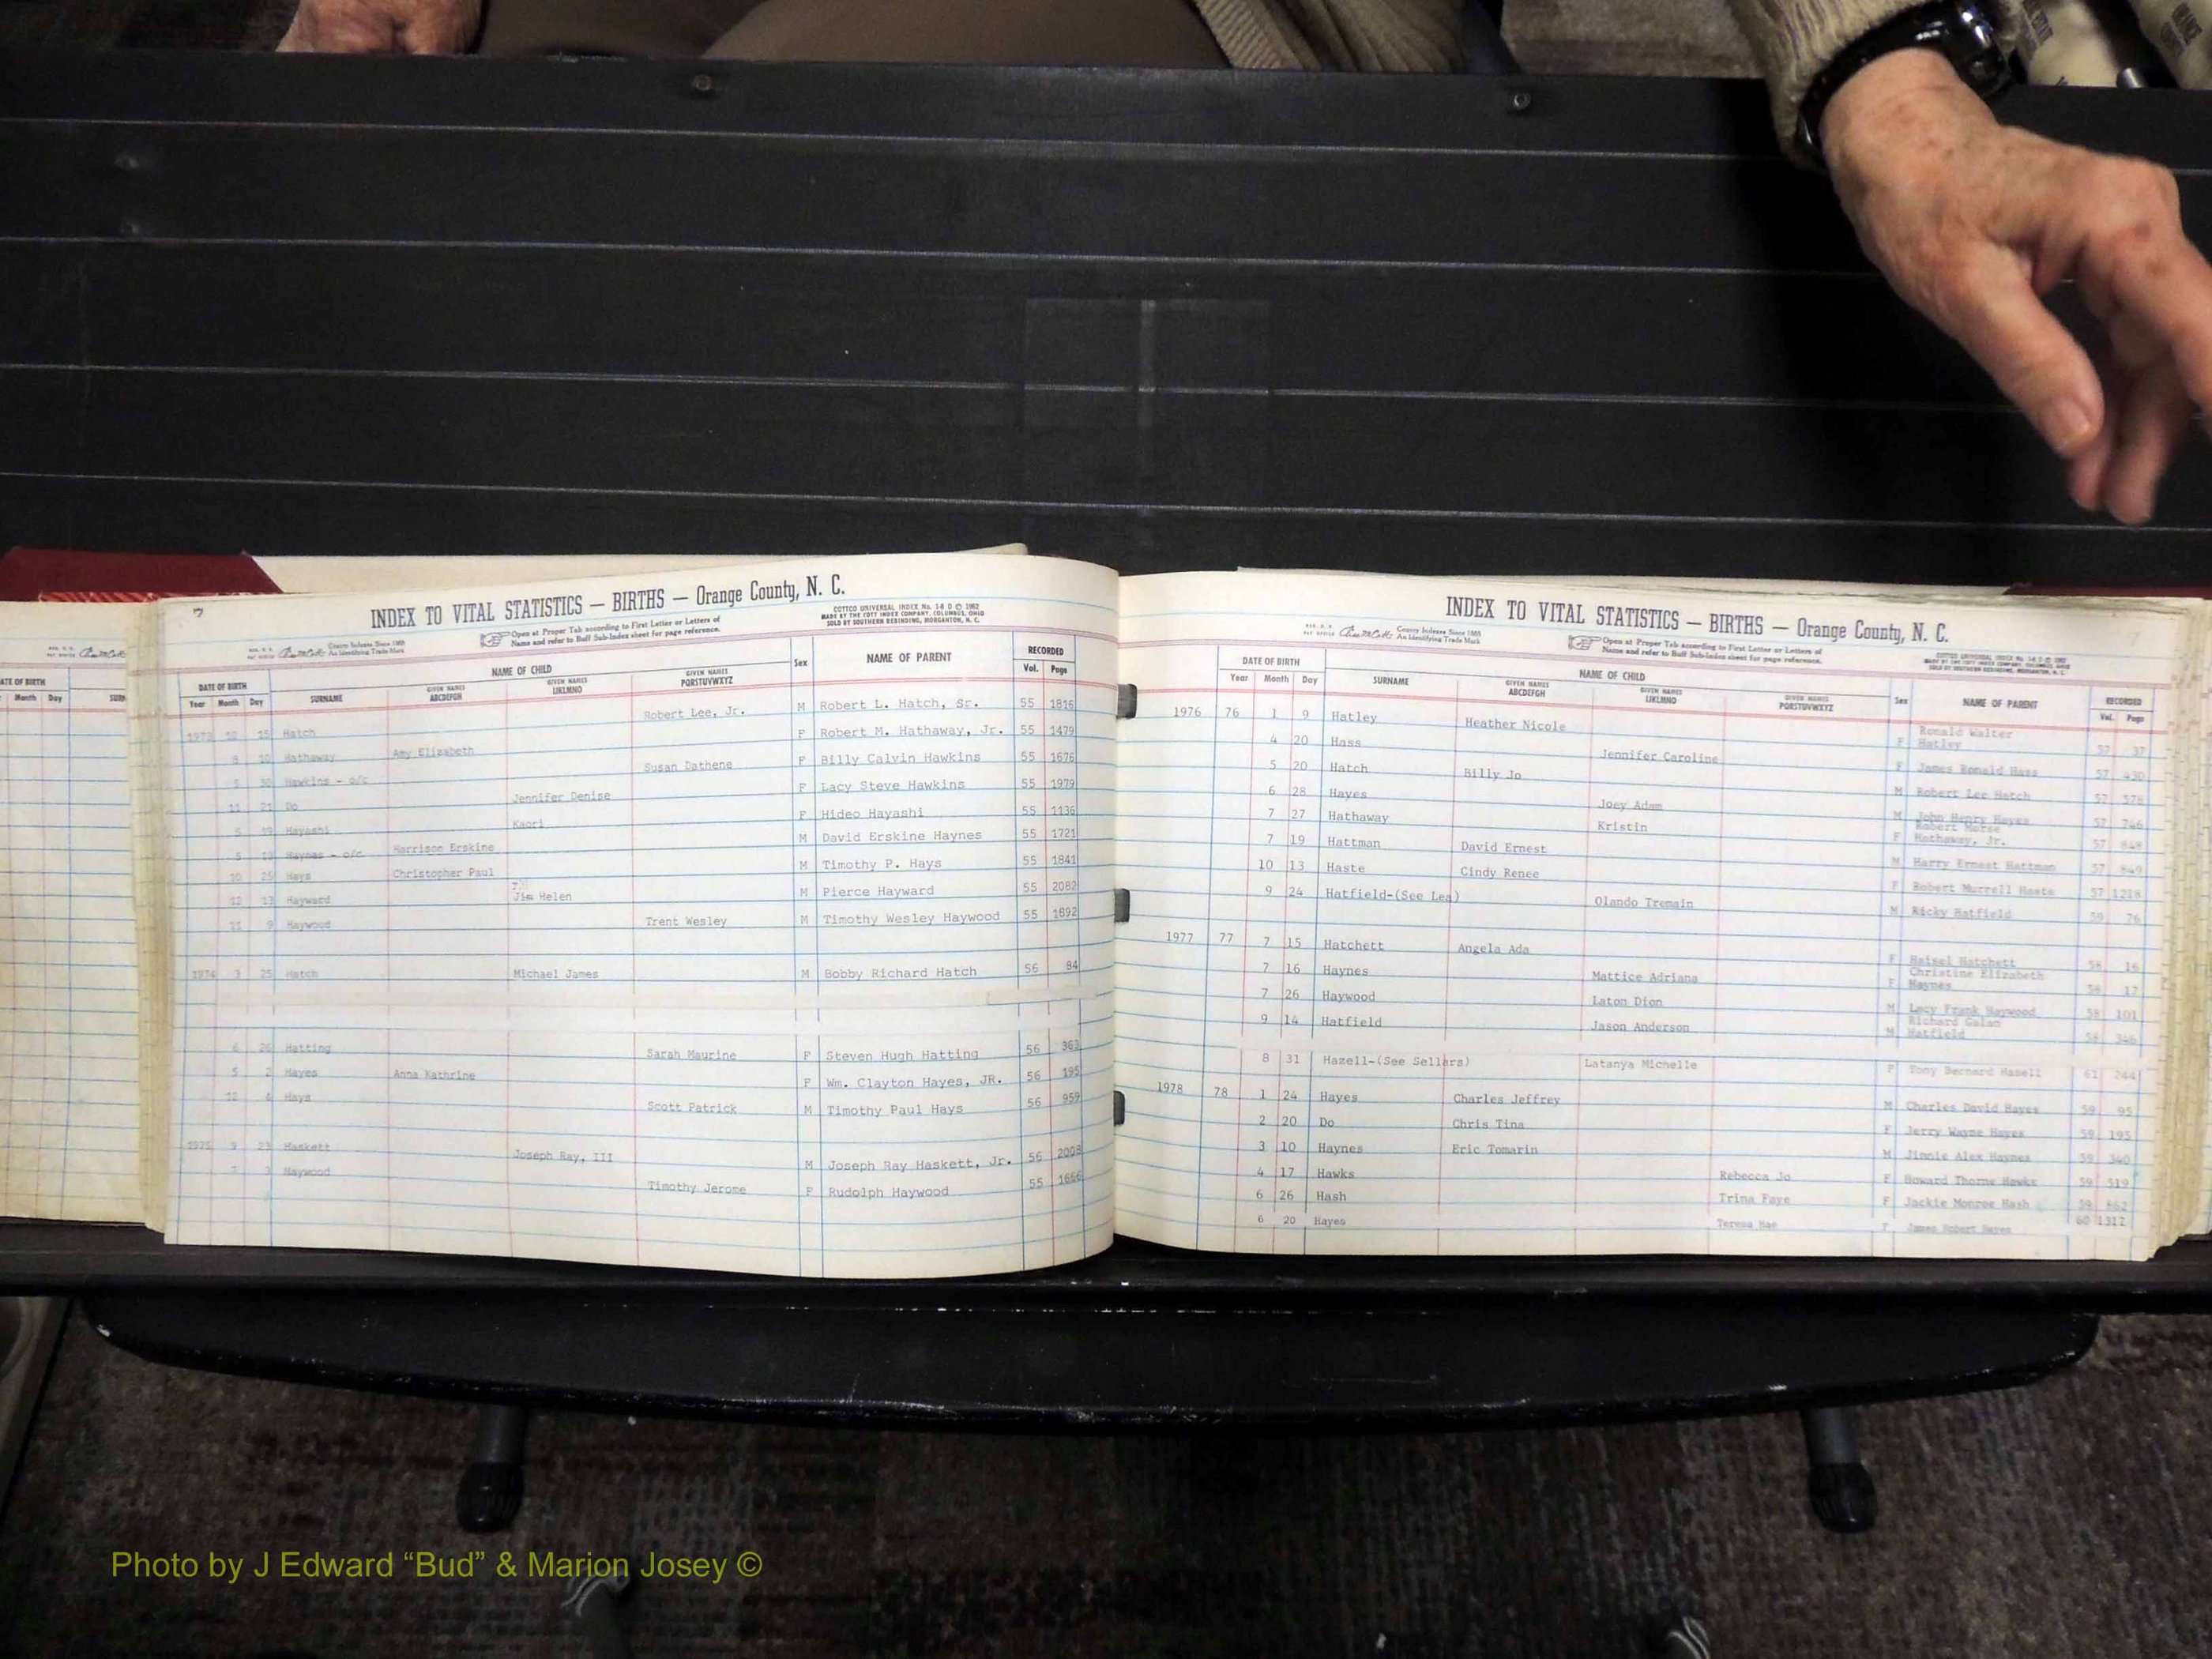 7
INDEX TO VITAL STATISTICS — BIRTHS — Orange County, N. C.
County Indexes Since 1888
An Identifying Trade Mark
Open at Proper Tab according to First Letter or Letters of
Name and refer to Buff Sub-Index sheet for page reference.
COTTCO UNIVERSAL INDEX No. 1-8 D © 1962
MADE BY THE COTT INDEX COMPANY, COLUMBUS, OHIO
SOLD BY SOUTHERN REBINDING, MORGANTON, N. C.
DATE OF BIRTH NAME OF CHILD Sex NAME OF PARENT RECORDED
Year Month Day SURNAME GIVEN NAMES ABCDEFGH GIVEN NAMES IJKLMNO GIVEN NAMES PQRSTUVWXYZ Vol. Page
1973 Hatch Robert Lee, Jr. M Robert L. Hatch, Sr. 55 1816
10 Hathaway Amy Elizabeth F Robert M. Hathaway, Jr. 55 1479
30 Hawkins - o/c Susan Dathene F Billy Calvin Hawkins 55 1676
11 21 Do Jennifer Denise F Lacy Steve Hawkins 55 1979
5 19 Hayashi Kaori F Hideo Hayashi 55 1136
Haynes - o/c Harrison Erskine M David Erskine Haynes 55 1721
10 25 Hays Christopher Paul M Timothy P. Hays 55 1841
12 13 Hayward Jim Helen M Pierce Hayward 55 2082
11 9 Haywood Trent Wesley M Timothy Wesley Haywood 55 1892
1974 3 25 Hatch Michael James M Bobby Richard Hatch 56 84
6 26 Hatting Sarah Maurine F Steven Hugh Hatting 56 363
5 2 Hayes Anna Kathrine F Wm. Clayton Hayes, JR. 56 195
12 4 Hays Scott Patrick M Timothy Paul Hays 56 959
1975 9 23 Haskett Joseph Ray, III M Joseph Ray Haskett, Jr. 56 2008
7 3 Haywood Timothy Jerome F Rudolph Haywood 55 1666
DATE OF BIRTH
Month Day
INDEX TO VITAL STATISTICS — BIRTHS — Orange County, N. C.
County Indexes Since 1888
An Identifying Trade Mark
Open at Proper Tab according to First Letter or Letters of
Name and refer to Buff Sub-Index sheet for page reference.
DATE OF BIRTH NAME OF CHILD Sex NAME OF PARENT RECORDED
Year Month Day SURNAME GIVEN NAMES ABCDEFGH GIVEN NAMES IJKLMNO GIVEN NAMES PQRSTUVWXYZ Vol. Page
1976 76 1 9 Hatley Heather Nicole F Ronald Walter Hatley 57 37
4 20 Hass Jennifer Caroline F James Ronald Hass 57 430
5 20 Hatch Billy Jo M Robert Lee Hatch 57 578
6 28 Hayes Joey Adam M John Henry Hayes 57 746
7 27 Hathaway Kristin F Robert Morse Hathaway, Jr. 57 848
7 19 Hattman David Ernest M Harry Ernest Hattman 57 849
10 13 Haste Cindy Renee F Robert Murrell Haste 57 1218
9 24 Hatfield-(See Lea) Olando Tremain M Ricky Hatfield 59 76
1977 77 7 15 Hatchett Angela Ada F Haisel Hatchett 58 16
7 16 Haynes Mattice Adriana F Christine Elizabeth Haynes 58 17
7 26 Haywood Laton Dion M Lacy Frank Haywood 58 101
9 14 Hatfield Jason Anderson M Richard Hatfield 58 346
8 31 Hazell-(See Sellars) Latanya Michelle F Tony Bernard Hazell 61 244
1978 78 1 24 Hayes Charles Jeffrey M Charles David Hayes 59 95
2 20 Do Chris Tina F Jerry Wayne Hayes 59 195
3 10 Haynes Eric Tomarin M Jinnie Alex Haynes 59 340
4 17 Hawks Rebecca Jo F Howard Thorne Hawks 59 519
6 26 Hash Trina Faye F Jackie Monroe Hash 59 862
6 20 Hayes Teresa Mae F James Robert Hayes 60 1312
Photo by J Edward “Bud” & Marion Josey ©